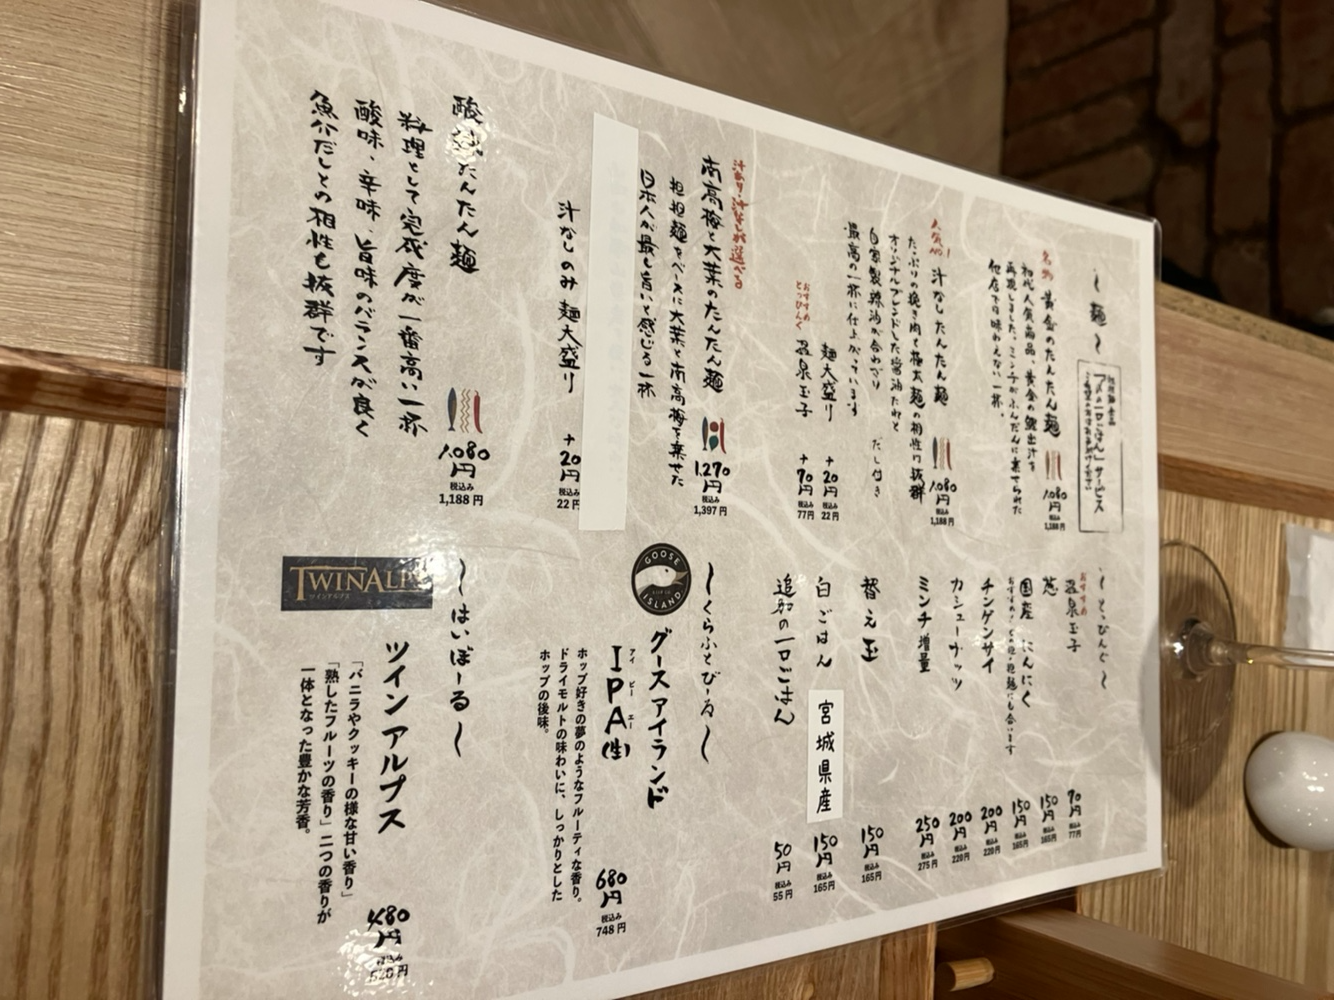 ～麺～
「〆の一口ごはん」サービス
名物
黄金のたんたん麺
1,080円
税込み
1,188円
初代人気商品、黄金の鰹出汁を
再現しました。ミンチがふんだんに乗せられた
他店では味わえない一杯。
人気No.1
汁なしたんたん麺
1,080円
税込み
1,188円
たっぷりの挽き肉と極太麺の相性は抜群
オリジナルブレンドした醤油だれと
自家製辣油が合わさり
最高の一杯に仕上がっています
だし付き
麺大盛り
+20円
税込み
22円
おすすめ
とっぴんぐ
温泉玉子
+70円
税込み
77円
汁あり・汁なしが選べる
南高梅と大葉のたんたん麺
1,270円
税込み
1,397円
担担麺をベースに大葉と南高梅を乗せた
日本人が最も旨いと感じる一杯
汁なしのみ 麺大盛り
+20円
税込み
22円
たんたん麺
1,080円
税込み
1,188円
料理として完成度が一番高い一杯
酸味、辛味、旨味のバランスが良く
魚介だしとの相性も抜群です
～とっぴんぐ～
おすすめ
温泉玉子
70円
税込み
77円
葱
150円
税込み
165円
国産 にんにく
150円
税込み
165円
チンゲンサイ
200円
税込み
220円
カシューナッツ
200円
税込み
220円
ミンチ増量
250円
税込み
275円
替え玉
150円
税込み
165円
白ごはん
宮城県産
150円
税込み
165円
追加の一口ごはん
50円
税込み
55円
～くらふとびーる～
GOOSE
ISLAND
グースアイランド
IPA(生)
アイ ピー エー
680円
税込み
748円
ホップ好きの夢のようなフルーティな香り。
ドライモルトの味わいに、しっかりとした
ホップの後味。
～はいぼーる～
TWINALPS
ツインアルプス
ツインアルプス
480円
税込み
528円
「バニラやクッキーの様な甘い香り」
「熟したフルーツの香り」二つの香りが
一体となった豊かな芳香。